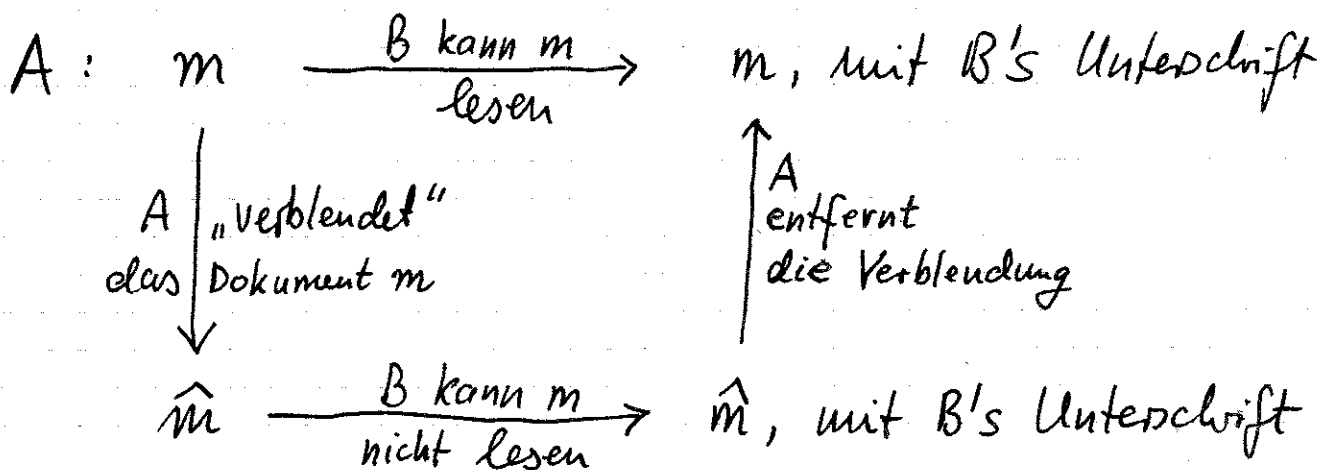 A : m B kann m lesen m, mit B's Unterschrift
A „verblendet“
das Dokument m
A
entfernt
die Verblendung
m̂ B kann m nicht lesen m̂, mit B's Unterschrift